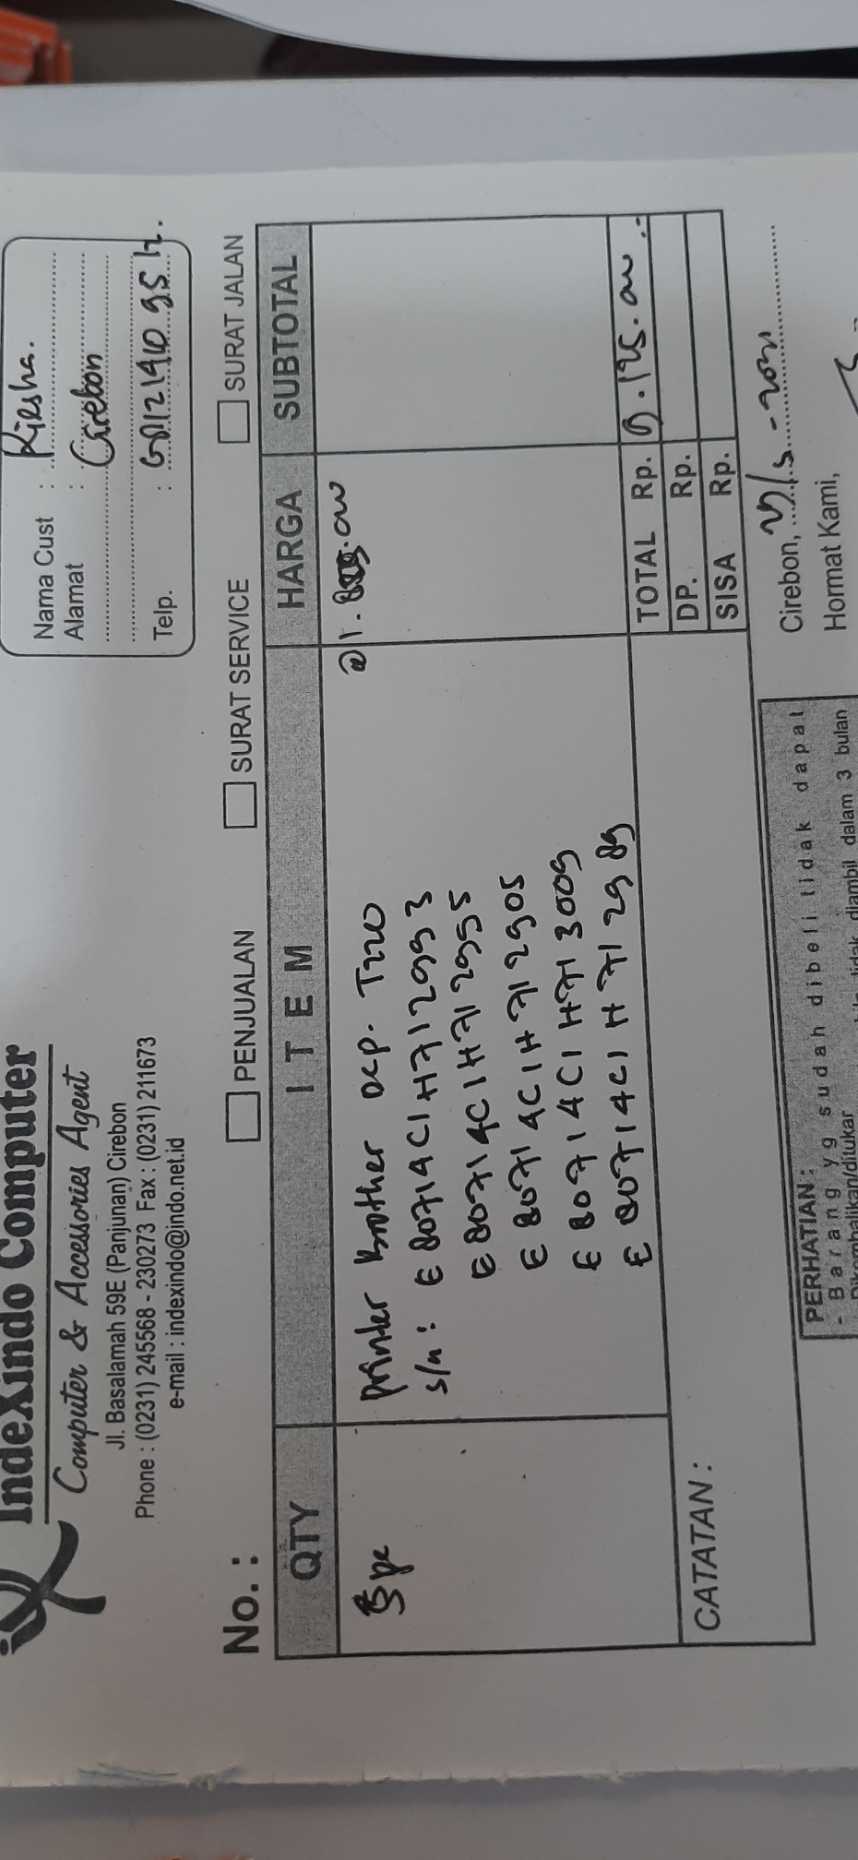 IndeXindo Computer
Computer & Accessories Agent
Jl. Basalamah 59E (Panjunan) Cirebon
Phone : (0231) 245568 - 230273 Fax : (0231) 211673
e-mail : indexindo@indo.net.id
Nama Cust : Riesha.
Alamat : Cirebon
Telp. :
No. :
PENJUALAN SURAT SERVICE SURAT JALAN
QTY ITEM HARGA SUBTOTAL
5 pc printer Brother DCP. T220 @ 1.
s/n : E80714C1H712993
E80714C1H712955
E80714C1H712905
E80714C1H713009
E80714C1H712989
TOTAL Rp. 9.125.000.-
DP. Rp.
SISA Rp.
CATATAN :
Cirebon,
Hormat Kami,
PERHATIAN :
- Barang yg sudah dibeli tidak dapat
Dikembalikan/ditukar
tidak diambil dalam 3 bulan